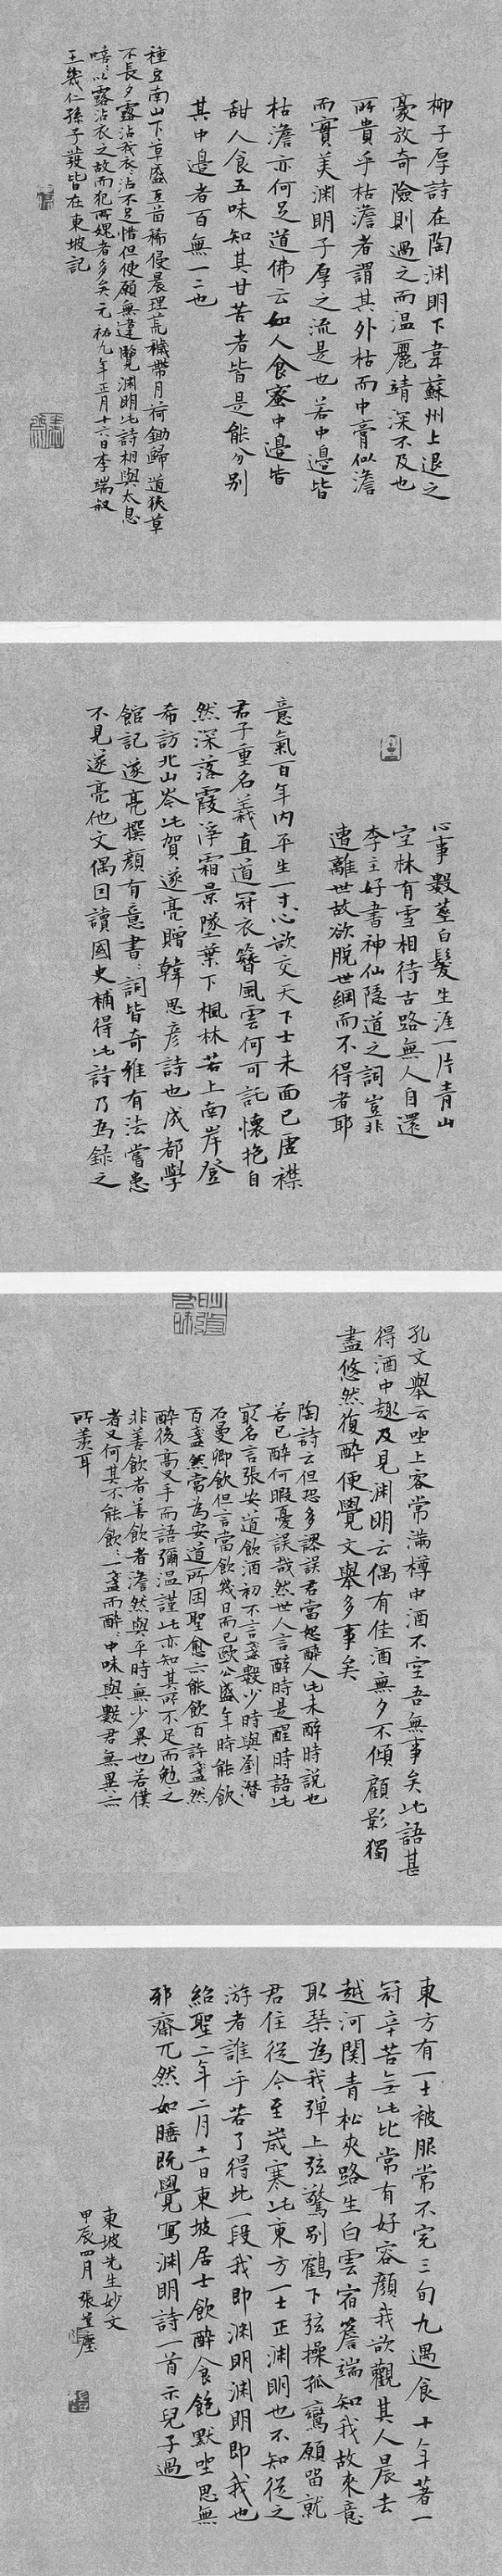 柳子厚詩在陶渊明下韋蘇州上退之
豪放奇險則過之而温麗靖深不及也
所貴乎枯澹者謂其外枯而中膏似澹
而實美渊明子厚之流是也若中邉皆
枯澹亦何足道佛云如人食蜜中邉皆
甜人食五味知其甘苦者皆是能分别
其中邉者百無一二也
種豆南山下草盛豆苗稀侵晨理荒穢帶月荷鋤歸道狹草
木長夕露沾我衣衣沾不足惜但使願無違覽渊明此詩相與太息
嘻嘻以露沾衣之故而犯所媿者多矣元祐九年正月十六日李端叔
王幾仁孫子發皆在東坡記
心事數莖白髮生涯一片青山
空林有雪相待古路無人自還
李主好書神仙隱遁之詞豈非
遭離世故欲脱世網而不得者耶
意氣百年内平生一寸心欲交天下士未面已虛襟
君子重名義直道冠衣簪風雲何可託懷抱自
然深落霞淨霜景墜葉下楓林若上南岸登
希訪北山岑此賀遂亮贈韓思彦詩也成都學
館記遂亮撰顔有意書書詞皆奇雅有法嘗患
不見遂亮他文偶因讀國史補得此詩乃為録之
孔文舉云坐上客常滿樽中酒不空吾無事矣此語甚
得酒中趣及見渊明云偶有佳酒無夕不傾顧影獨
盡悠然復醉便覺文舉多事矣
陶詩云但恐多謬誤君當恕醉人此未醉時説也
若已醉何暇憂誤哉然世人言醉時是醒時語此
㝡名言張安道飲酒初不言盞數少時與劉潛
石曼卿飲但言當飲幾日而已歐公盛年時能飲
百盞然常為安道所困聖俞亦能飲百許盞然
醉後高叉手而語彌温謹此亦知其所不足而勉之
非善飲者善飲者澹然與平時無少異也若僕
者又何其不能飲飲一盞而醉醉中味與數君無異亦
所羨耳
東方有一士被服常不完三旬九遇食十年著一
冠辛苦無此比常有好容顔我欲觀其人晨去
越河関青松夾路生白雲宿簷端知我故來意
取琴為我弹上弦驚别鶴下弦操孤鸞願留就
君住從今至歲寒此東方一士正渊明也不知從之
游者誰乎若了得此一段我即渊明渊明即我也
紹聖二年二月十一日東坡居士飲醉食飽默坐思無
邪齋兀然如睡既覺寫渊明詩一首示兒子過
東坡先生妙文
甲辰四月張